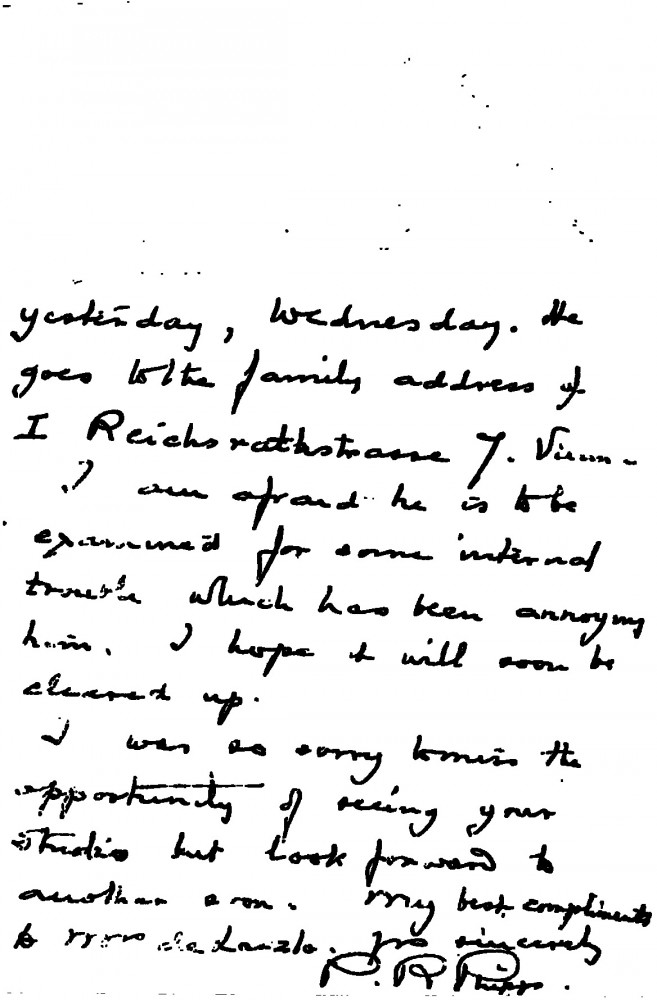 yesterday, Wednesday. He
goes to the family address of
I Reichsrathstrasse 7. Vienn-
I am afraid he is to be
examined for some internal
trouble which has been annoying
him. I hope it will soon be
cleared up.
I was so sorry to miss the
opportunity of seeing your
studio but look forward to
another soon. My best compliments
to Mrs de Laszlo. Yrs sincerely
P. R. Phipps.